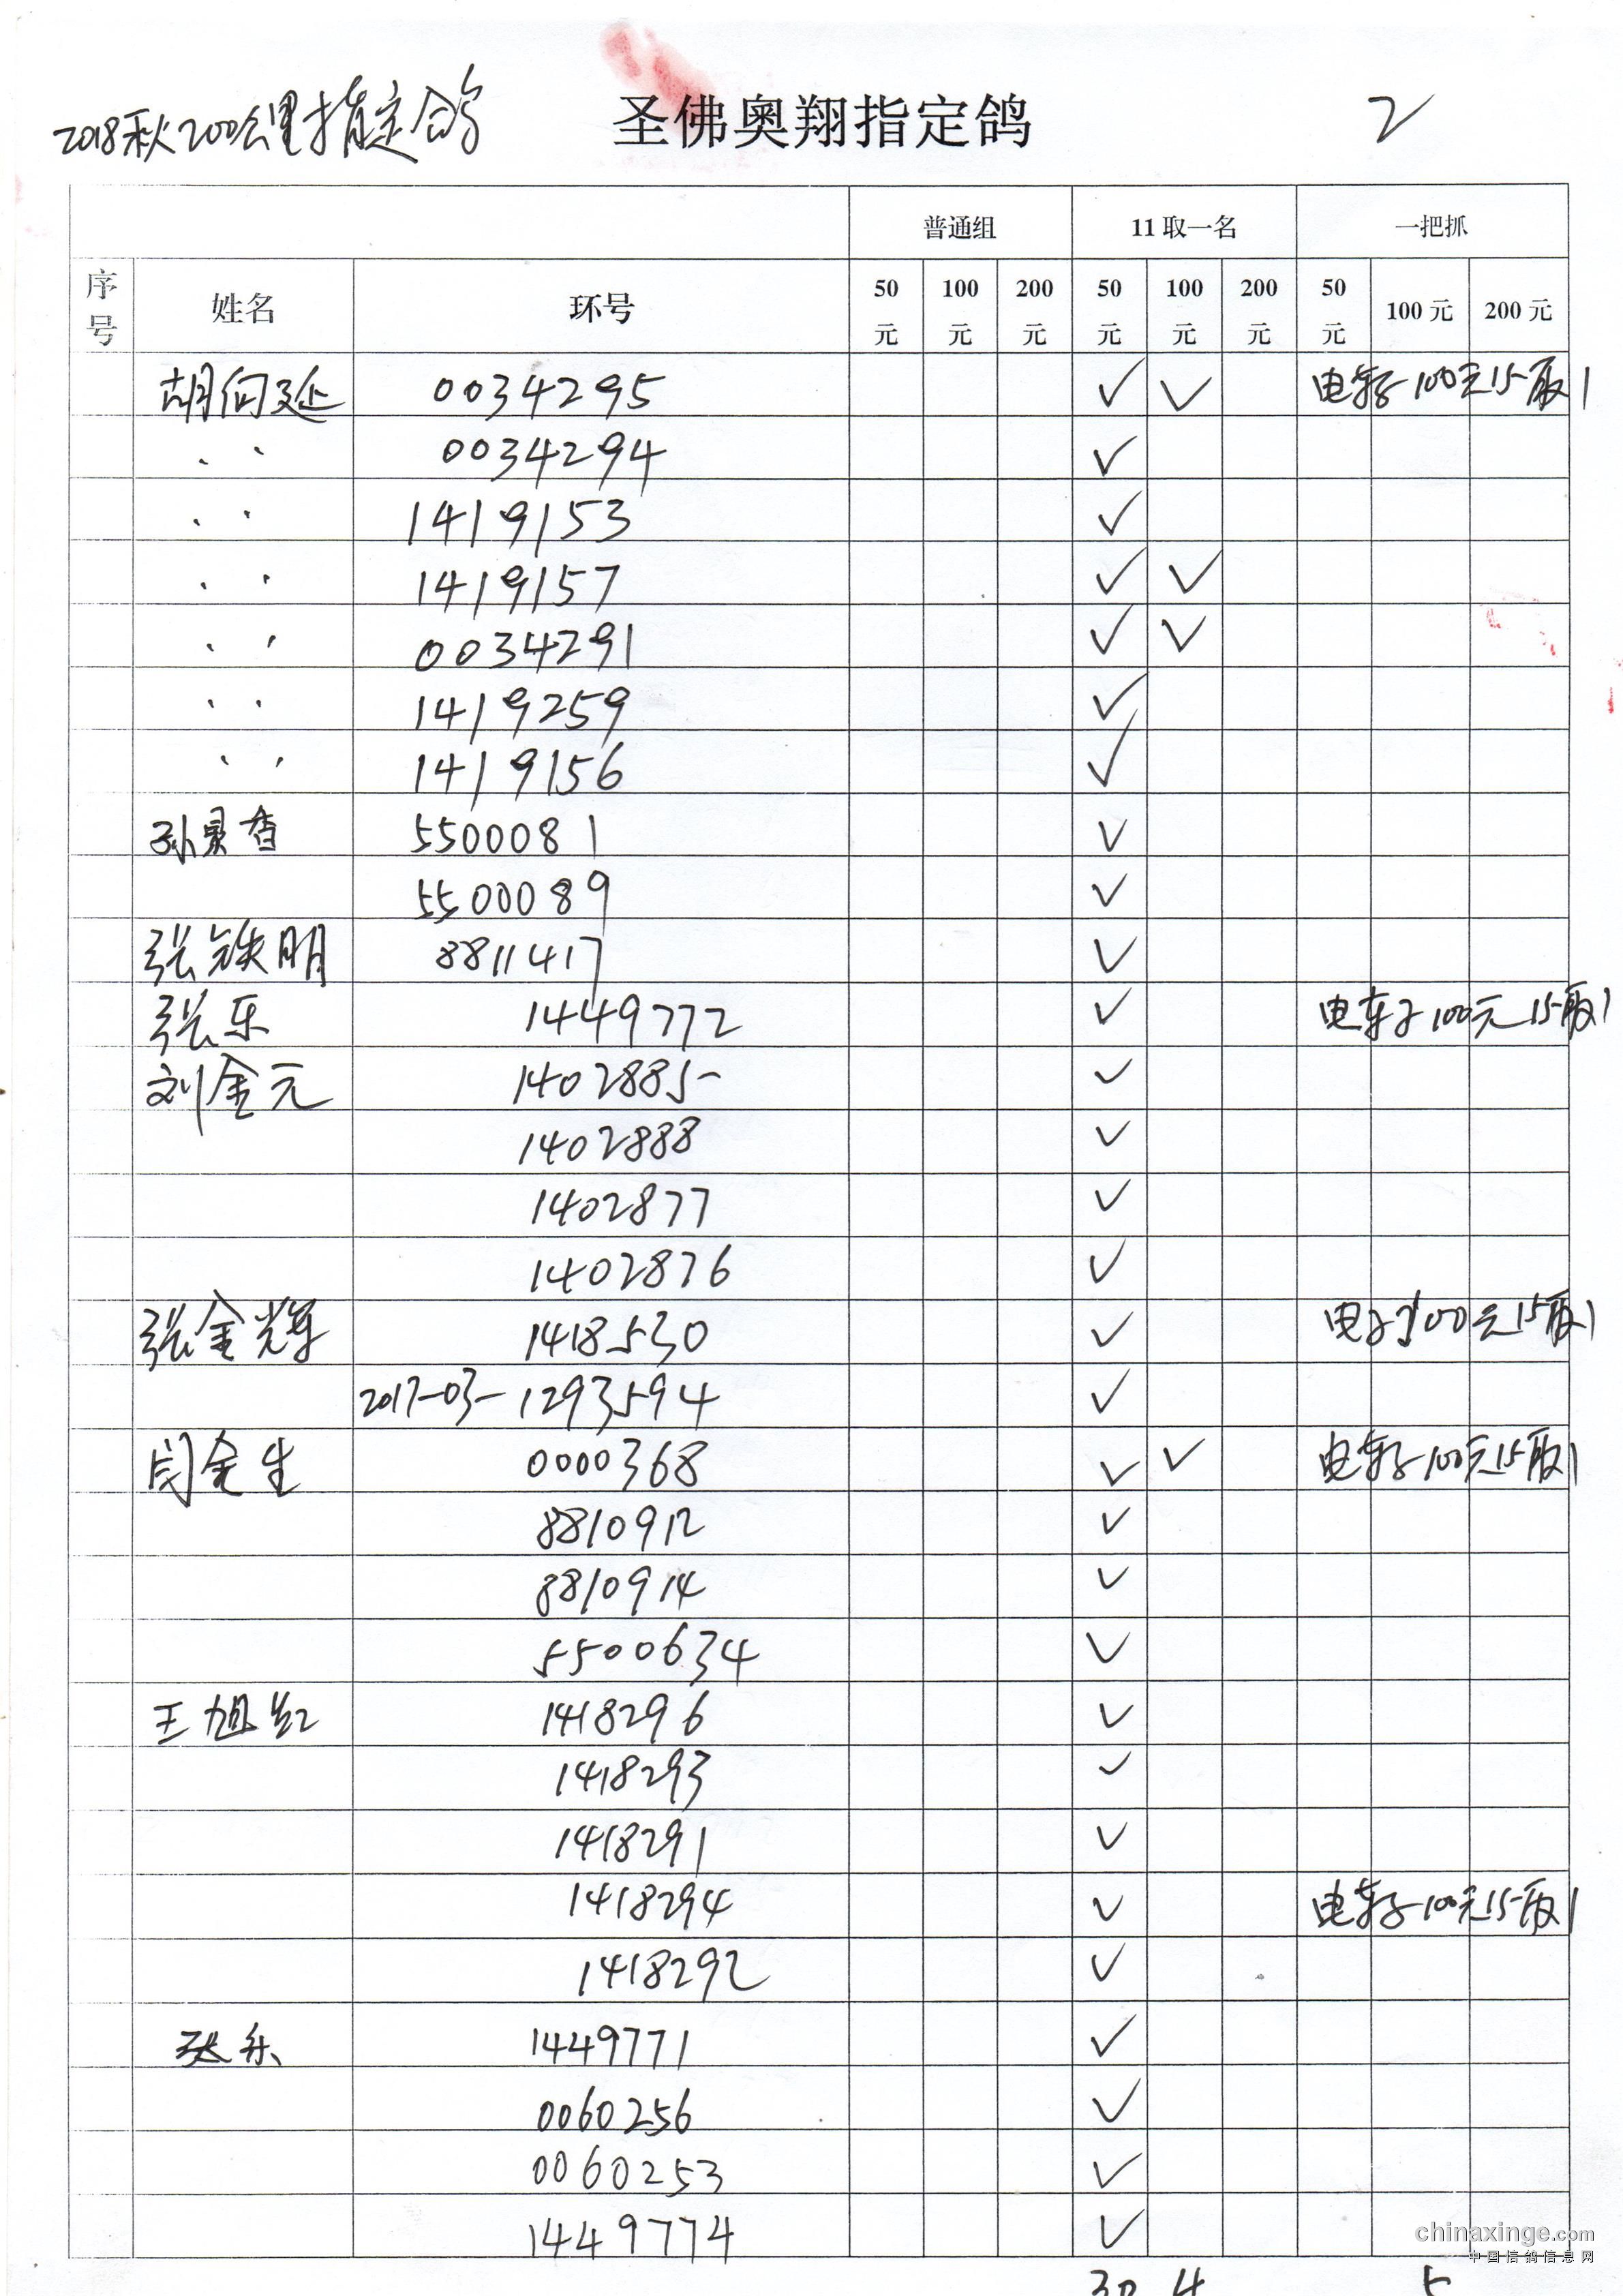 2018秋200公里指定鸽
圣佛奥翔指定鸽
2
普通组 11取一名 一把抓
序号 姓名 环号 50元 100元 200元 50元 100元 200元 50元 100元 200元
胡向延 0034295 ✓ ✓ 电车子100元15取1
〃 0034294 ✓
〃 1419153 ✓
〃 1419157 ✓ ✓
〃 0034291 ✓ ✓
〃 1419259 ✓
〃 1419156 ✓
孙贵香 5500081 ✓
5500089 ✓
张铁明 8811417 ✓
张乐 1449772 ✓ 电车子100元15取1
刘金元 1402885 ✓
1402888 ✓
1402877 ✓
1402876 ✓
张金辉 1418530 ✓ 电子100元15取1
2017-03-1293594 ✓
闫金生 0000368 ✓ ✓ 电车子100元15取1
8810912 ✓
8810914 ✓
5500634 ✓
王旭 1418296 ✓
1418293 ✓
1418291 ✓
1418294 ✓ 电车子100元15取1
1418292 ✓
张乐 1449771 ✓
0060256 ✓
0060253 ✓
1449774 ✓
30 4 5
chinaxinge.com
中国信鸽信息网